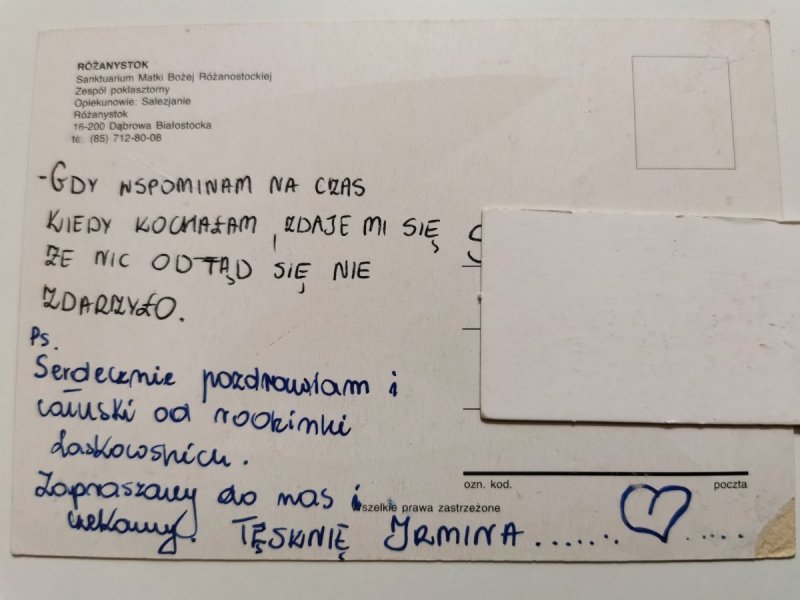 RÓŻANYSTOK
Sanktuarium Matki Bożej Różanostockiej
Zespół poklasztorny
Opiekunowie: Salezjanie
Różanystok
16-200 Dąbrowa Białostocka
tel. (85) 712-80-08
-GDY WSPOMINAM NA CZAS
KIEDY KOCHAŁAM, ZDAJE MI SIĘ
ŻE NIC ODTĄD SIĘ NIE
ZDARZYŁO.
Ps.
Serdecznie pozdrawiam i
całuski od rodzinki
Zapraszamy do nas i
czekamy. TĘSKNIĘ IRMINA ...... .....
ozn. kod. poczta
wszelkie prawa zastrzeżone